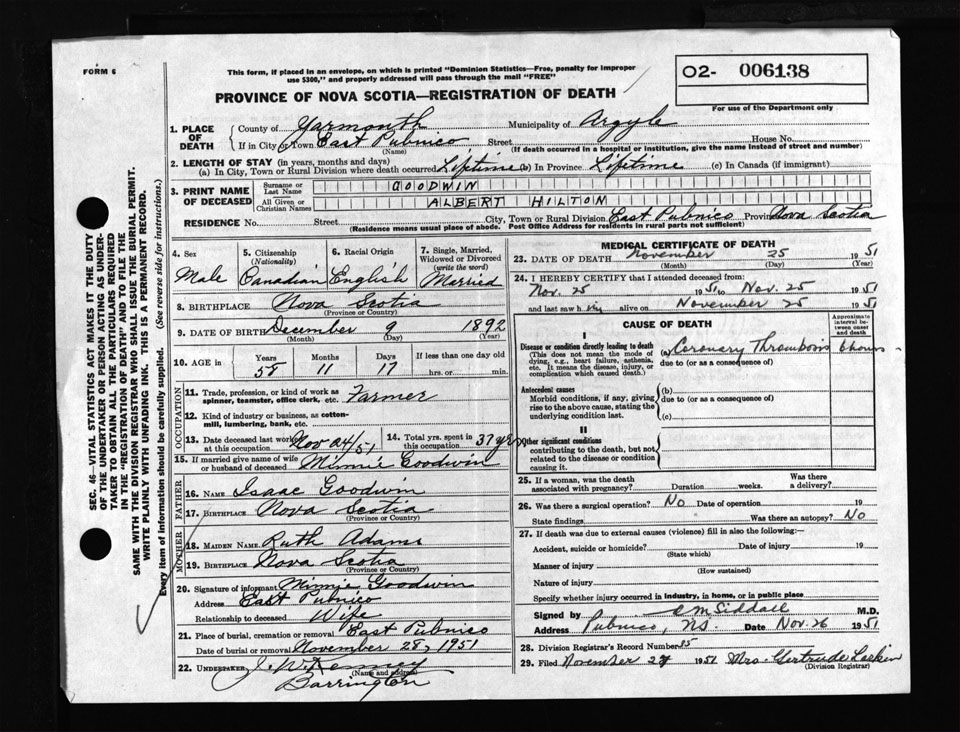 FORM 6
This form, if placed in an envelope, on which is printed "Dominion Statistics—Free, penalty for improper
use $300," and properly addressed will pass through the mail "FREE"
02- 006138
For use of the Department only
PROVINCE OF NOVA SCOTIA—REGISTRATION OF DEATH
SEC. 46—VITAL STATISTICS ACT MAKES IT THE DUTY
OF THE UNDERTAKER OR PERSON ACTING AS UNDER-
TAKER TO OBTAIN ALL THE PARTICULARS REQUIRED
IN THE "REGISTRATION OF DEATH" AND TO FILE THE
SAME WITH THE DIVISION REGISTRAR WHO SHALL ISSUE THE BURIAL PERMIT.
WRITE PLAINLY WITH UNFADING INK. THIS IS A PERMANENT RECORD.
Every item of information should be carefully supplied. (See reverse side for instructions.)
1. PLACE OF DEATH
County of Yarmouth Municipality of Argyle
If in City or Town East Pubnico Street House No.
(Name) (If death occurred in a hospital or institution, give the name instead of street and number)
2. LENGTH OF STAY (in years, months and days)
(a) In City, Town or Rural Division where death occurred Lifetime (b) In Province Lifetime (c) In Canada (if immigrant)
3. PRINT NAME OF DECEASED
Surname or Last Name GOODWIN
All Given or Christian Names ALBERT HILTON
RESIDENCE No. Street City, Town or Rural Division East Pubnico Province Nova Scotia
(Residence means usual place of abode. Post Office Address for residents in rural parts not sufficient)
4. Sex
Male
5. Citizenship
(Nationality)
Canadian
6. Racial Origin
English
7. Single, Married, Widowed or Divorced
(write the word)
Married
8. BIRTHPLACE Nova Scotia
(Province or Country)
9. DATE OF BIRTH December 9 1892
(Month) (Day) (Year)
10. AGE in
Years Months Days If less than one day old
58 11 17 hrs. or min.
OCCUPATION
11. Trade, profession, or kind of work as
spinner, teamster, office clerk, etc. Farmer
12. Kind of industry or business, as cotton-
mill, lumbering, bank, etc.
13. Date deceased last worked at this occupation Nov 24/51
14. Total yrs. spent in this occupation 37 yrs
15. If married give name of wife
or husband of deceased Minnie Goodwin
FATHER
16. NAME Isaac Goodwin
17. BIRTHPLACE Nova Scotia
(Province or Country)
MOTHER
18. MAIDEN NAME Ruth Adams
19. BIRTHPLACE Nova Scotia
(Province or Country)
20. Signature of informant Minnie Goodwin
Address East Pubnico
Relationship to deceased Wife
21. Place of burial, cremation or removal East Pubnico
Date of burial or removal November 28, 1951
22. UNDERTAKER J. W. Kenney
(Name and address)
Barrington
MEDICAL CERTIFICATE OF DEATH
23. DATE OF DEATH November 25 1951
(Month) (Day) (Year)
24. I HEREBY CERTIFY that I attended deceased from:
Nov. 25 1951 to Nov. 25 1951
and last saw him alive on November 25 1951
CAUSE OF DEATH
Approximate interval between onset and death
I
Disease or condition directly leading to death (a) Coronary Thrombosis 6 hours
(This does not mean the mode of dying, e.g., heart failure, asthenia, etc. It means the disease, injury, or complication which caused death.)
due to (or as a consequence of)
Antecedent causes
Morbid conditions, if any, giving rise to the above cause, stating the underlying condition last.
(b)
due to (or as a consequence of)
(c)
II
Other significant conditions
contributing to the death, but not related to the disease or condition causing it.
25. If a woman, was the death associated with pregnancy? Duration weeks. Was there a delivery?
26. Was there a surgical operation? No Date of operation 19
State findings Was there an autopsy? No
27. If death was due to external causes (violence) fill in also the following:—
Accident, suicide or homicide? Date of injury 19
(State which)
Manner of injury
(How sustained)
Nature of injury
Specify whether injury occurred in industry, in home, or in public place
Signed by C M Siddall M.D.
Address Pubnico, NS. Date Nov. 26 1951
28. Division Registrar's Record Number 15
29. Filed November 27 1951 Mrs. Gertrude Larkin
(Division Registrar)